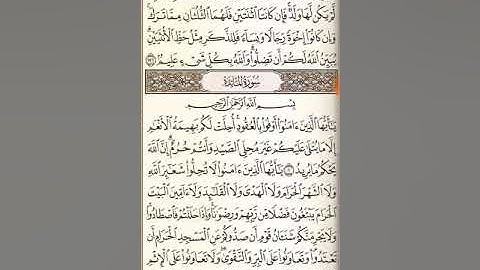 لَّمْ يَكُن لَّهَا وَلَدٌ فَإِن كَانَتَا ٱثْنَتَيْنِ فَلَهُمَا ٱلثُّلُثَانِ مِمَّا تَرَكَ
وَإِن كَانُوٓا۟ إِخْوَةً رِّجَالًا وَنِسَآءً فَلِلذَّكَرِ مِثْلُ حَظِّ ٱلْأُنثَيَيْنِ
يُبَيِّنُ ٱللَّهُ لَكُمْ أَن تَضِلُّوا۟ وَٱللَّهُ بِكُلِّ شَىْءٍ عَلِيمٌۢ ١٧٦
سُورَةُ المَائِدَةِ
بِسْمِ ٱللَّهِ ٱلرَّحْمَٰنِ ٱلرَّحِيمِ
يَٰٓأَيُّهَا ٱلَّذِينَ ءَامَنُوٓا۟ أَوْفُوا۟ بِٱلْعُقُودِ أُحِلَّتْ لَكُم بَهِيمَةُ ٱلْأَنْعَٰمِ
إِلَّا مَا يُتْلَىٰ عَلَيْكُمْ غَيْرَ مُحِلِّى ٱلصَّيْدِ وَأَنتُمْ حُرُمٌ إِنَّ ٱللَّهَ
يَحْكُمُ مَا يُرِيدُ ١ يَٰٓأَيُّهَا ٱلَّذِينَ ءَامَنُوا۟ لَا تُحِلُّوا۟ شَعَٰٓئِرَ ٱللَّهِ
وَلَا ٱلشَّهْرَ ٱلْحَرَامَ وَلَا ٱلْهَدْىَ وَلَا ٱلْقَلَٰٓئِدَ وَلَآ ءَآمِّينَ ٱلْبَيْتَ
ٱلْحَرَامَ يَبْتَغُونَ فَضْلًا مِّن رَّبِّهِمْ وَرِضْوَٰنًا وَإِذَا حَلَلْتُمْ فَٱصْطَادُوا۟
وَلَا يَجْرِمَنَّكُمْ شَنَـَٔانُ قَوْمٍ أَن صَدُّوكُمْ عَنِ ٱلْمَسْجِدِ ٱلْحَرَامِ أَن
تَعْتَدُوا۟ وَتَعَاوَنُوا۟ عَلَى ٱلْبِرِّ وَٱلتَّقْوَىٰ وَلَا تَعَاوَنُوا۟ عَلَى ٱلْإِثْمِ